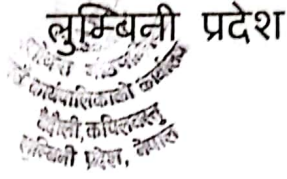 लुम्बिनी प्रदेश
कार्यपालिकाको कार्यालय
कपिलवस्तु
लुम्बिनी प्रदेश, नेपाल